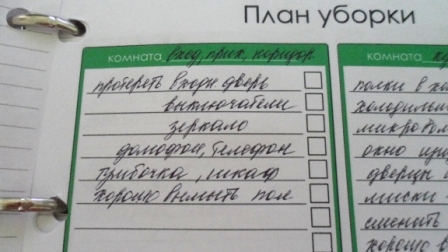 План уборки
комната вход, прих, коридор
протереть входн дверь
выключатели
зеркало
домофон, телефон
тумбочка, шкаф
хорошо вымыть пол
комната
полки в
холодильн
микровол
окно
дверцы
миски
сменить
хорошо